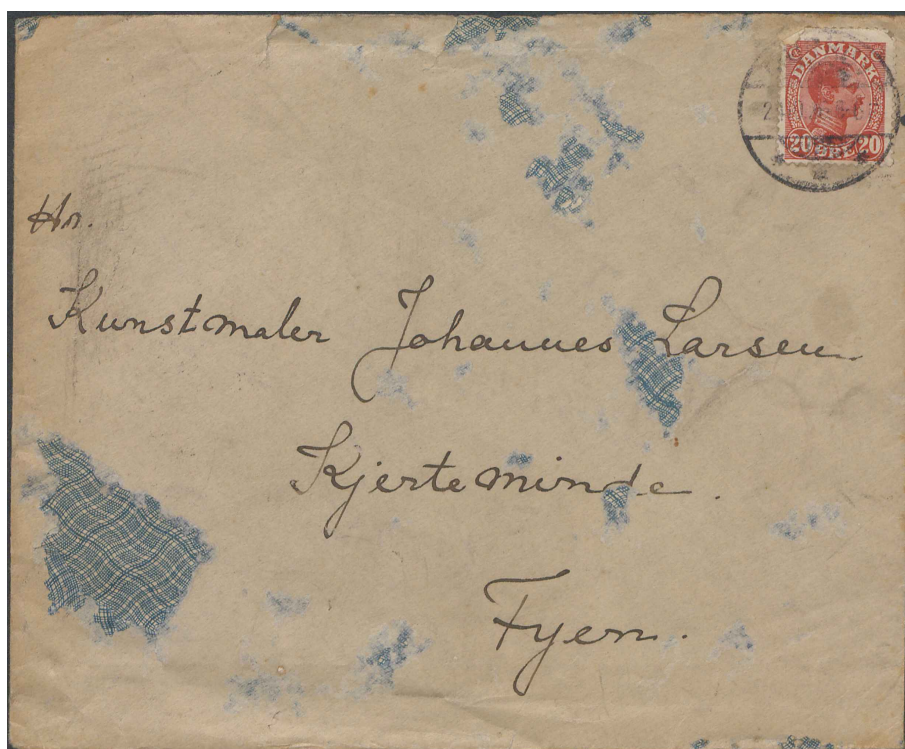 DANMARK
20 ØRE 20
Hr.
Kunstmaler Johannes Larsen
Kjerteminde.
Fyen.